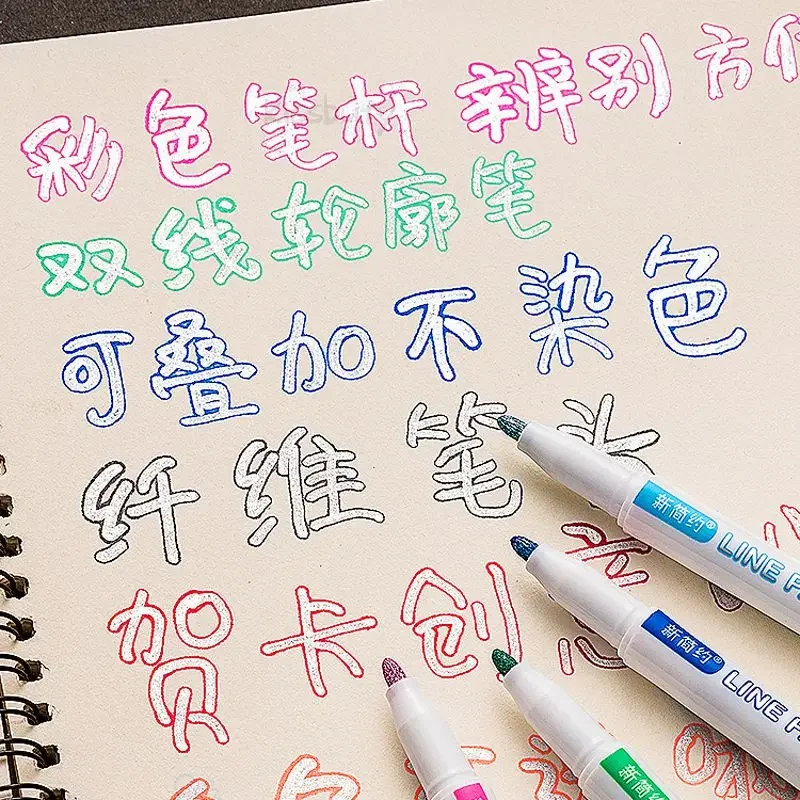 彩色笔杆 辨别方便
双线轮廓笔
可叠加不染色
纤维笔头
贺卡创意
新简约®
LINE P
新简约®
LINE P
新简约